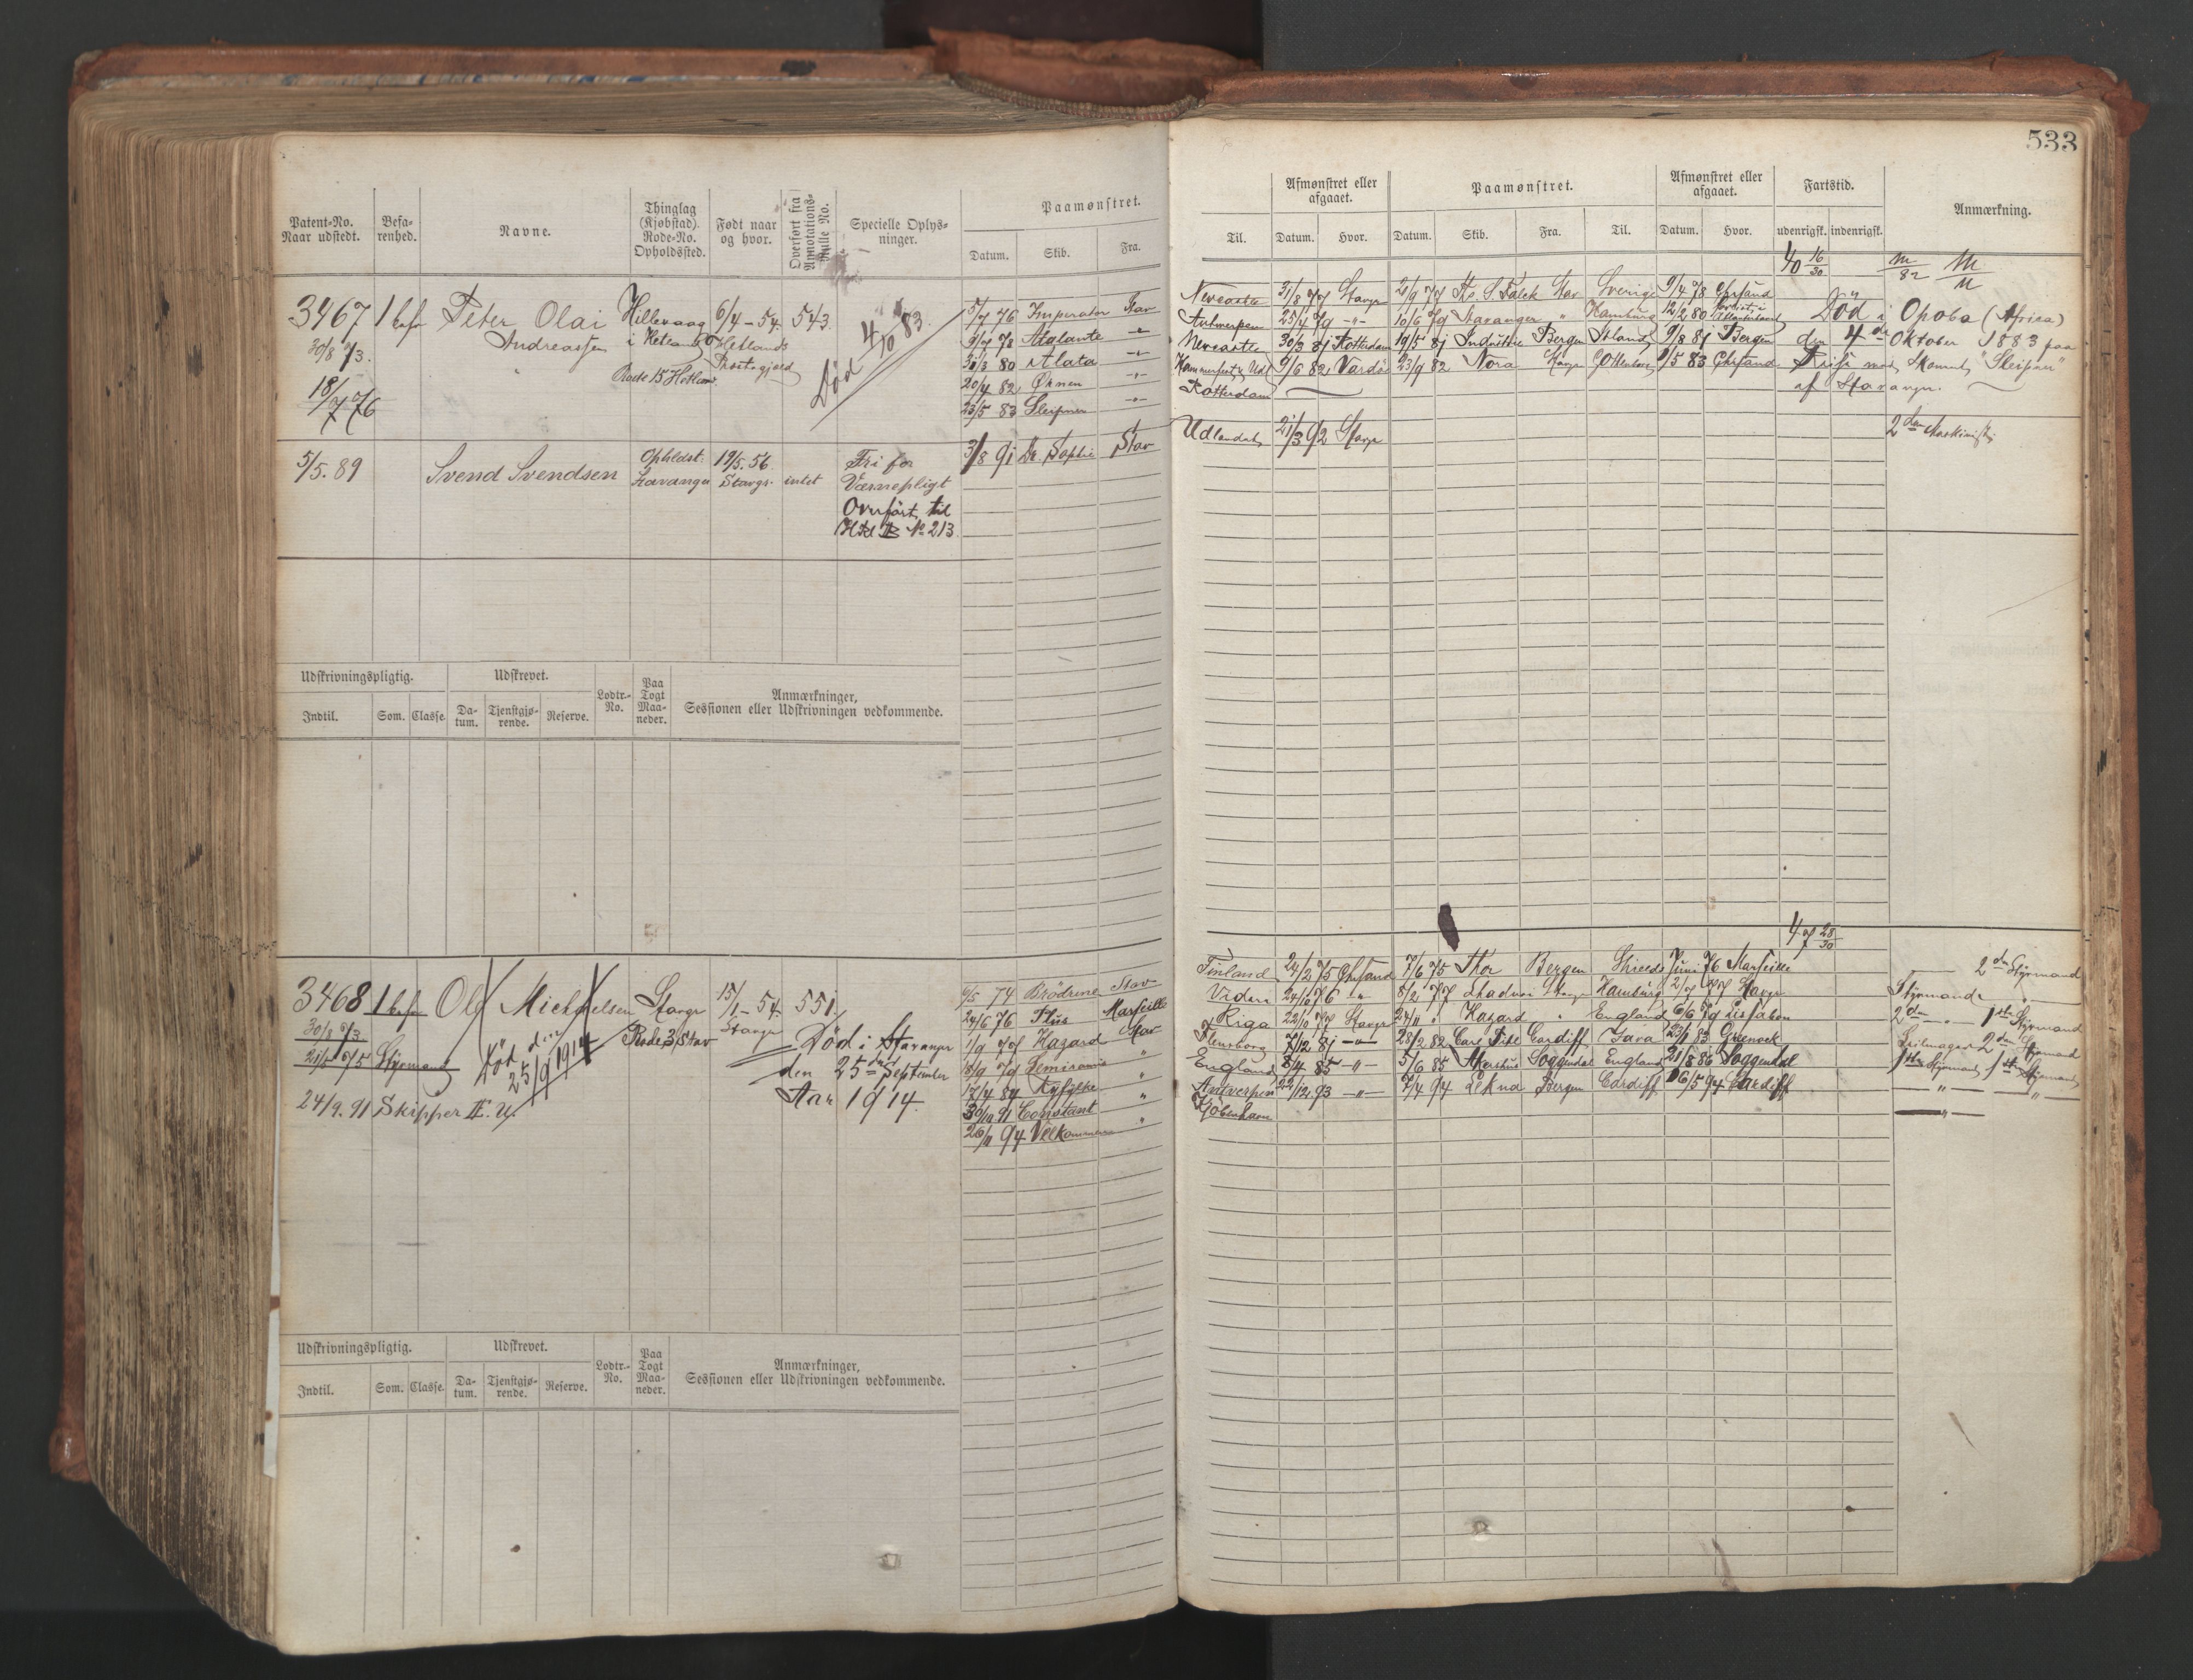 533
Patent-No.
Naar udstedt.
Befa-
renhed.
Navne.
Thinglag
(Kjøbstad).
Rode-No.
Opholdssted.
Født naar
og hvor.
Overført fra
Annotations-
Rulle No.
Specielle Oplys-
ninger.
Paamønstret.
Datum. Skib. Fra.
Til.
Afmønstret eller
afgaaet.
Datum. Hvor.
Paamønstret.
Datum. Skib. Fra. Til.
Afmønstret eller
afgaaet.
Datum. Hvor.
Fartstid.
udenrigsk. indenrigsk.
Anmærkning.
40 16/30
3467 1 befa Peter Olai
Andreassen
30/8 73.
18/7 76
Hillevaag
i Hetland
Rode 15 Hetland.
6/4-54.
Hetlands
Præstegjæld
543.
Død 4/10 83.
5/7 76 Imperator Stav
9/7 78 Atalante -"-
31/3 80 Alata -"-
20/4 82 Ørnen -"-
23/5 83 Sleipner -"-
Newcastle 31/8 77 Stavgr 21/9 77 Stav Sverige 9/4 78 Chrsand
Antwerpen 25/4 79 -"- 10/6 79 Stavanger " Hamburg 12/2 80
Newcastle 30/3 81 Rotterdam 19/5 81 Industrie Bergen Island 9/8 81 Bergen
Hammerfest 9/6 82 Vardö 23/9 82 Nora Stavgr Gottenborg 9/5 83 Chrsand
Rotterdam
Död i Opobo (Africa)
den 4de Oktober 1883 paa
Reise med Skonnert "Sleipner"
af Stavanger.
5/5. 89 Svend Svendsen
Opholdst:
Stavanger
19/5. 56
Stavgr.
intet
Fri for
Værnepligt
Overført til
Hkl B No 213
3/8 91 Dr. Sophie Stav
Udlandet 21/3 92 Stavgr
2den Maskinist
Udskrivningspligtig.
Indtil. Som. Classe.
Udskrevet.
Da-
tum.
Tjenstgjø-
rende.
Reserve.
Lodtr.-
No.
Paa
Togt
Maa-
neder.
Anmærkninger,
Sessionen eller Udskrivningen vedkommende.
47 28/30
3468 1 befa Ole Michaelsen
30/8 73
21/5 75 Styrmand
24/9. 91 Skipper
Död den
25/9 1914
Stavgr
Rode 3/Stav
15/1-54.
Stavgr
551.
Død i Stavanger
den 25de September
Aar 1914.
6/5 74 Brödrene Stav
24/6 76 Marseille
1/9 77 Hazard Stav
8/9 79 Semiramis "
17/4 84 "
30/10 91 Constant "
26/11 94 Velkommen "
Finland 24/2 75 Chrsand 7/6 75 Thor Bergen Shields Juni 76 Marseille
24/10 76 " 8/2 77 Stavgr Hamburg 2/7 77 Stavgr
Riga 22/10 77 Stavgr 24/11 " Hazard " England 6/6 79 Lissabon
Flensborg 7/12 81 -"- 28/2 82 Cardiff Java 23/1 83 Greenock
England 8/4 85 -"- 5/6 85 Akershus Soggendal England 21/8 86 Soggendal
Antwerpen 22/12 93 -"- 7/4 94 Bergen Cardiff 16/5 94 Cardiff
Kjöbenhavn
2den Styrmand
Styrmand
2den -"- 1ste Styrmand
Seilmager 2den Styrmand
1ste Styrmand 1ste Styrmand
-"- -"-
-"-
Udskrivningspligtig.
Indtil. Som. Classe.
Udskrevet.
Da-
tum.
Tjenstgjø-
rende.
Reserve.
Lodtr.-
No.
Paa
Togt
Maa-
neder.
Anmærkninger,
Sessionen eller Udskrivningen vedkommende.